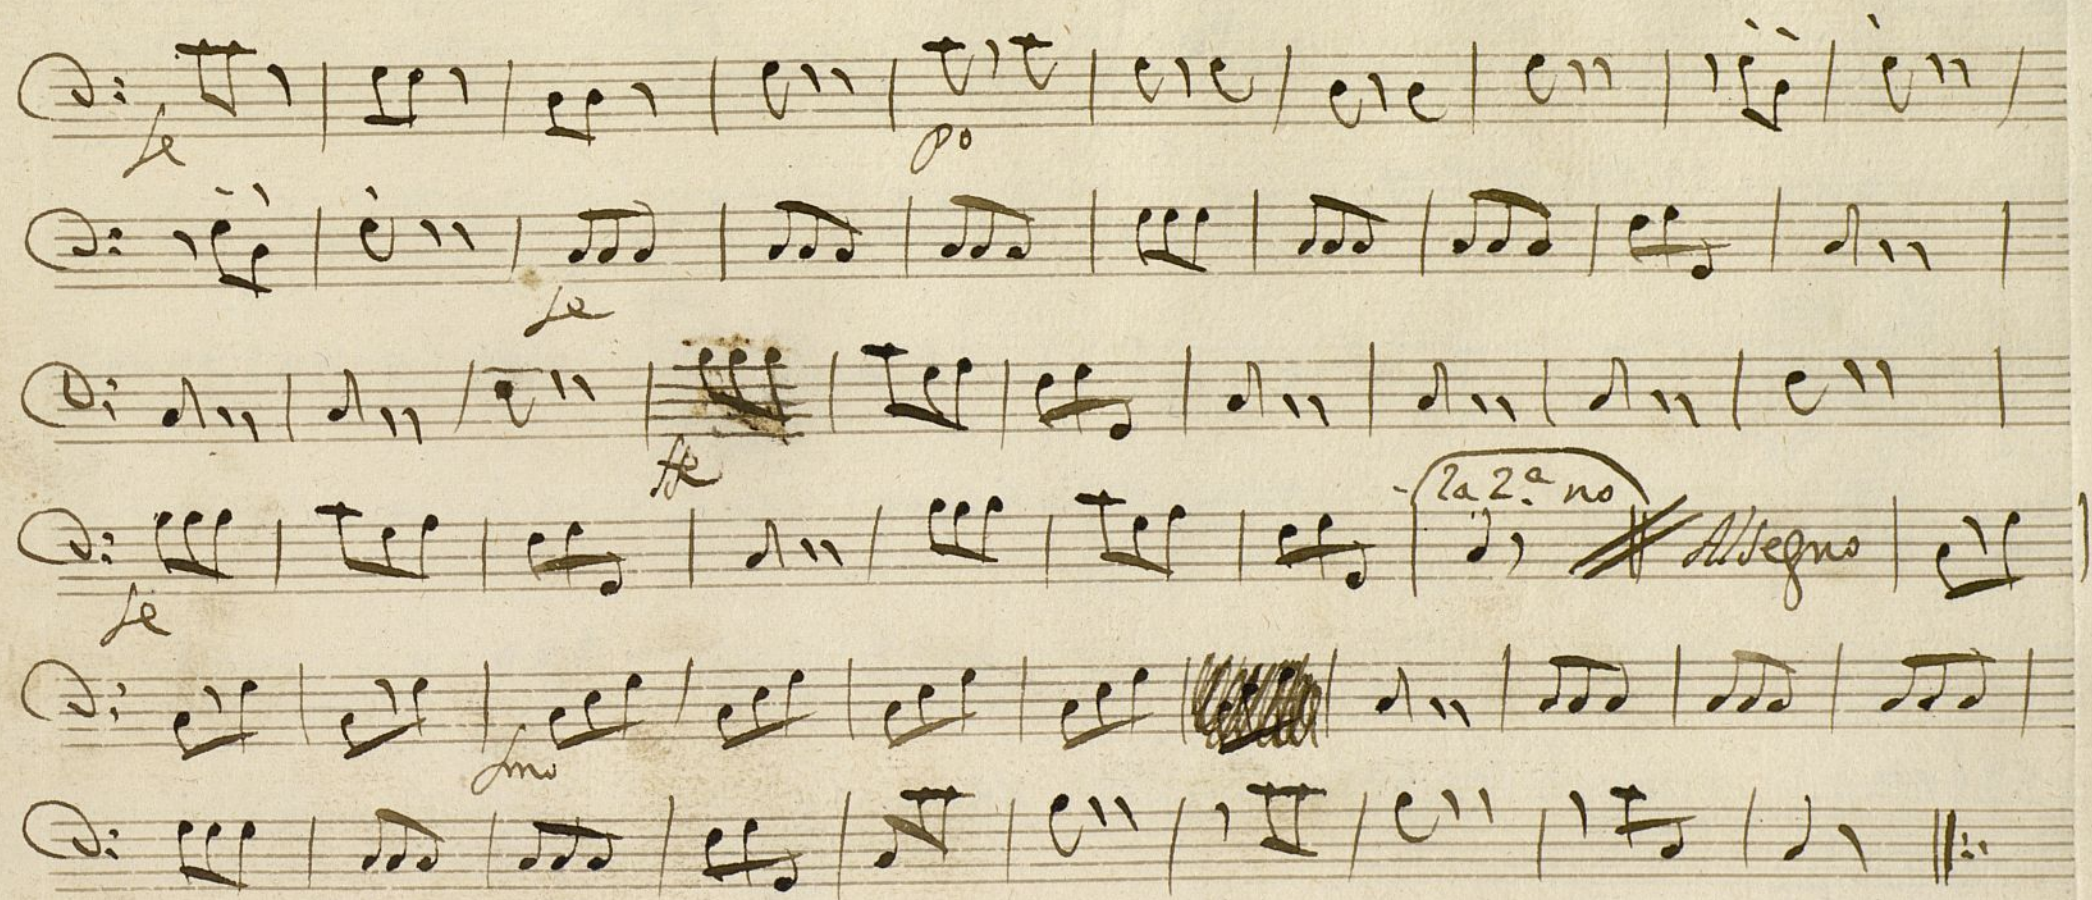 fe
po
fe
ff
2a 2.a no
Al segno
fe
fmo